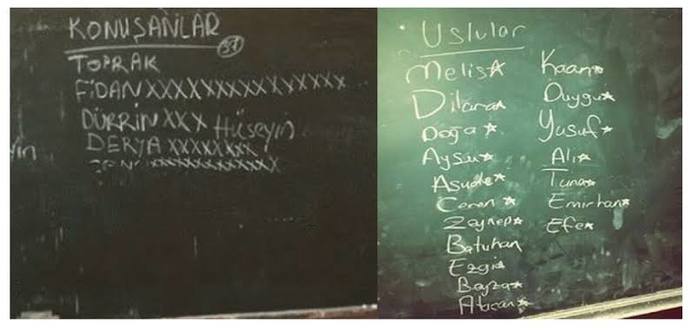 KONUŞANLAR
TOPRAK
FİDAN XXXXXXXXXXXXXXXX
DÜRRİN XXX Hüseyin
DERYA XXXXXXXX
Uslular
Melis★
Dilara★
Doğa★
Aysu★
Asude★
Ceren★
Zeynep★
Batuhan
Ezgi★
Beyza★
Atacan★
Kaan★
Duygu★
Yusuf★
Ali★
Tuna★
Emirhan★
Efe★